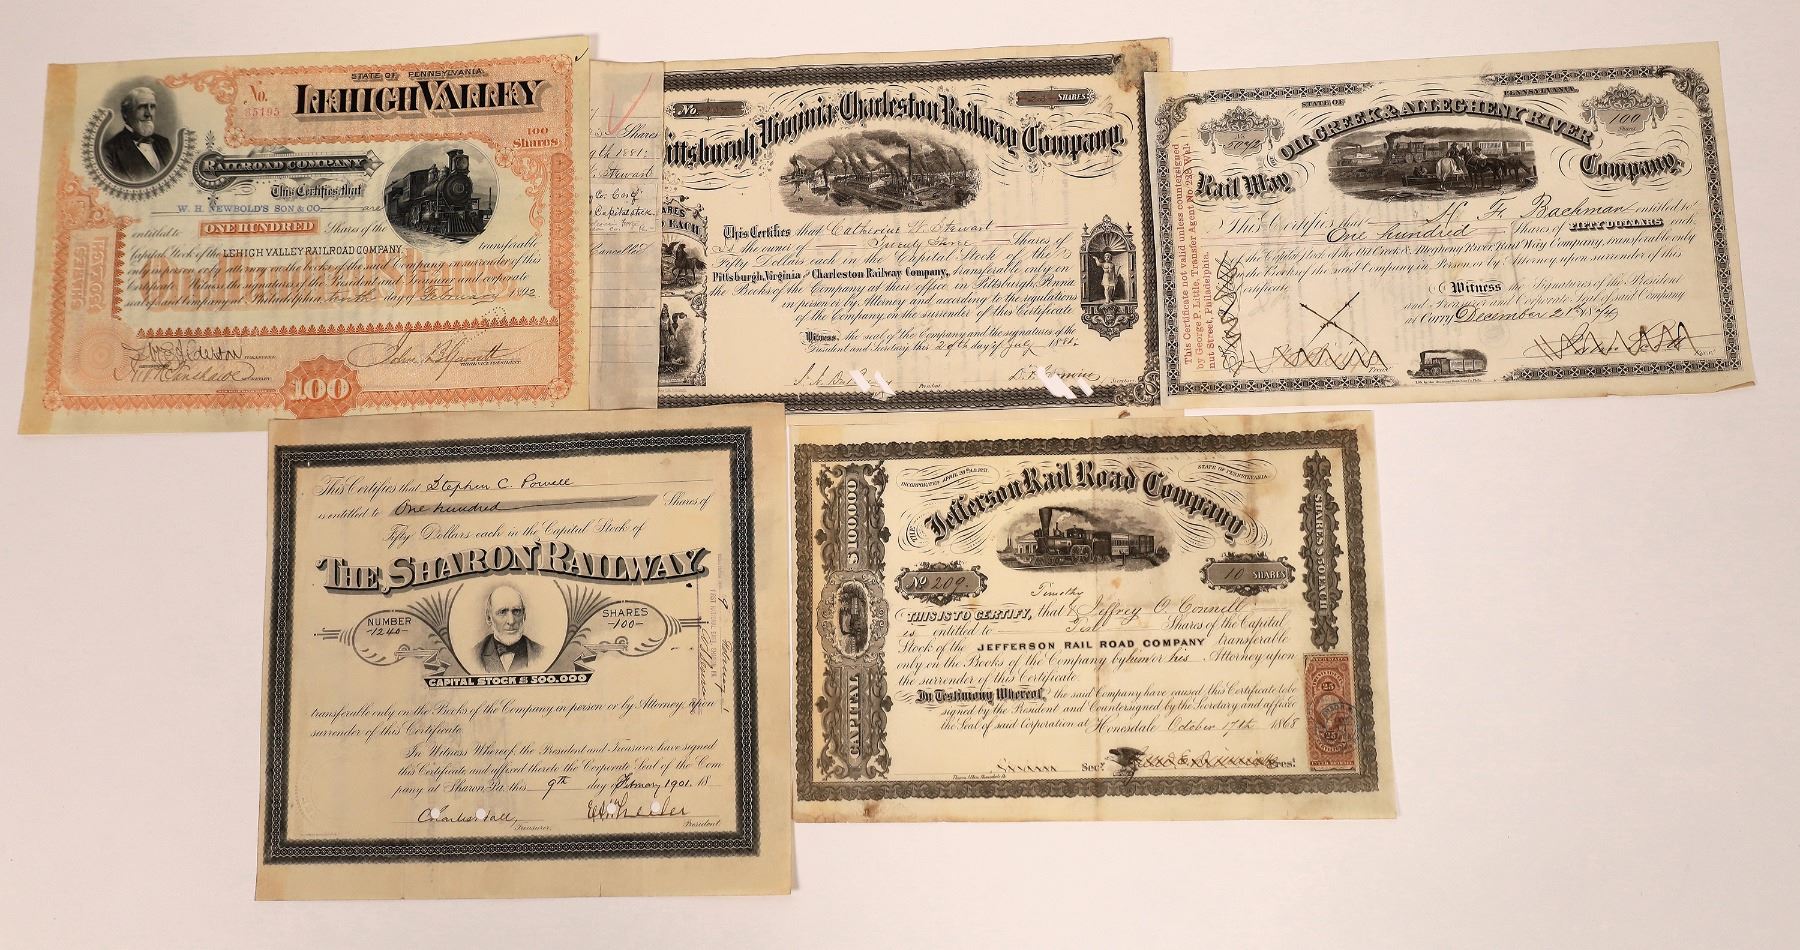 STATE OF PENNSYLVANIA
No.
35195
LEHIGH VALLEY
100
Shares
RAILROAD COMPANY
This Certifies that
W. H. NEWBOLD'S SON & CO. are
entitled to ONE HUNDRED Shares of the
Capital Stock of the LEHIGH VALLEY RAILROAD COMPANY, transferable
only in person or by attorney on the books of the said Company on surrender of this
Certificate. Witness the signatures of the President and Treasurer and corporate
seal of said Company at Philadelphia this day of February 1892
100
Shares
1881
Stewart
Capital stock
No.
SHARES
Pittsburgh, Virginia & Charleston Railway Company
This Certifies that Catherine W. Stewart
is the owner of Twenty three Shares of
Fifty Dollars each in the Capital Stock of the
Pittsburgh, Virginia and Charleston Railway Company, transferable only on
the Books of the Company at their office in Pittsburgh, Penna.
in person or by Attorney and according to the regulations
of the Company, on the surrender of this Certificate.
Witness, the seal of the Company and the signatures of the
President and Secretary this 29th day of July 1881.
President
Secretary
STATE OF PENNSYLVANIA
5042
OIL CREEK & ALLEGHENY RIVER
100
Shares
Rail Way Company.
This Certifies that H. F. Bachman entitled to
One hundred Shares of FIFTY DOLLARS each
of the Capital Stock of the Oil Creek & Allegheny River Rail Way Company, transferable only
on the Books of the Company in Person or by Attorney upon surrender of this
Certificate.
Witness the Signatures of the President
and Treasurer and Corporate Seal of said Company
at Corry December 21st 1874
This Certificate not valid unless countersigned
by George P. Little, Transfer Agent No. 233 Wal-
nut Street, Philadelphia.
Treasr
This Certifies that Stephen C. Powell
is entitled to One hundred Shares of
Fifty Dollars each in the Capital Stock of
THE SHARON RAILWAY.
NUMBER
-1240-
SHARES
-100-
CAPITAL STOCK $500.000
transferable only on the Books of the Company in person or by Attorney, upon
surrender of this Certificate.
In Witness Whereof, the President and Treasurer have signed
this Certificate and affixed thereto the Corporate Seal of the Com-
pany at Sharon Pa. this 9th day of February 1901. 18
Treasurer.
President
INCORPORATED APRIL 28th A.D. 1851.
STATE OF PENNSYLVANIA.
THE Jefferson Rail Road Company
CAPITAL $100.000
SHARES $50 EACH
No 209.
10 SHARES
Timothy
THIS IS TO CERTIFY, that & Jeffrey O. Connell
is entitled to Ten Shares of the Capital
Stock of the JEFFERSON RAIL ROAD COMPANY transferable
only on the Books of the Company by him or his Attorney upon
the surrender of this Certificate.
In Testimony Whereof, the said Company have caused this Certificate to be
signed by the President and Countersigned by the Secretary and affixed
the Seal of said Corporation at Honesdale October 17th 1868
Secy.
Prest.
25
25